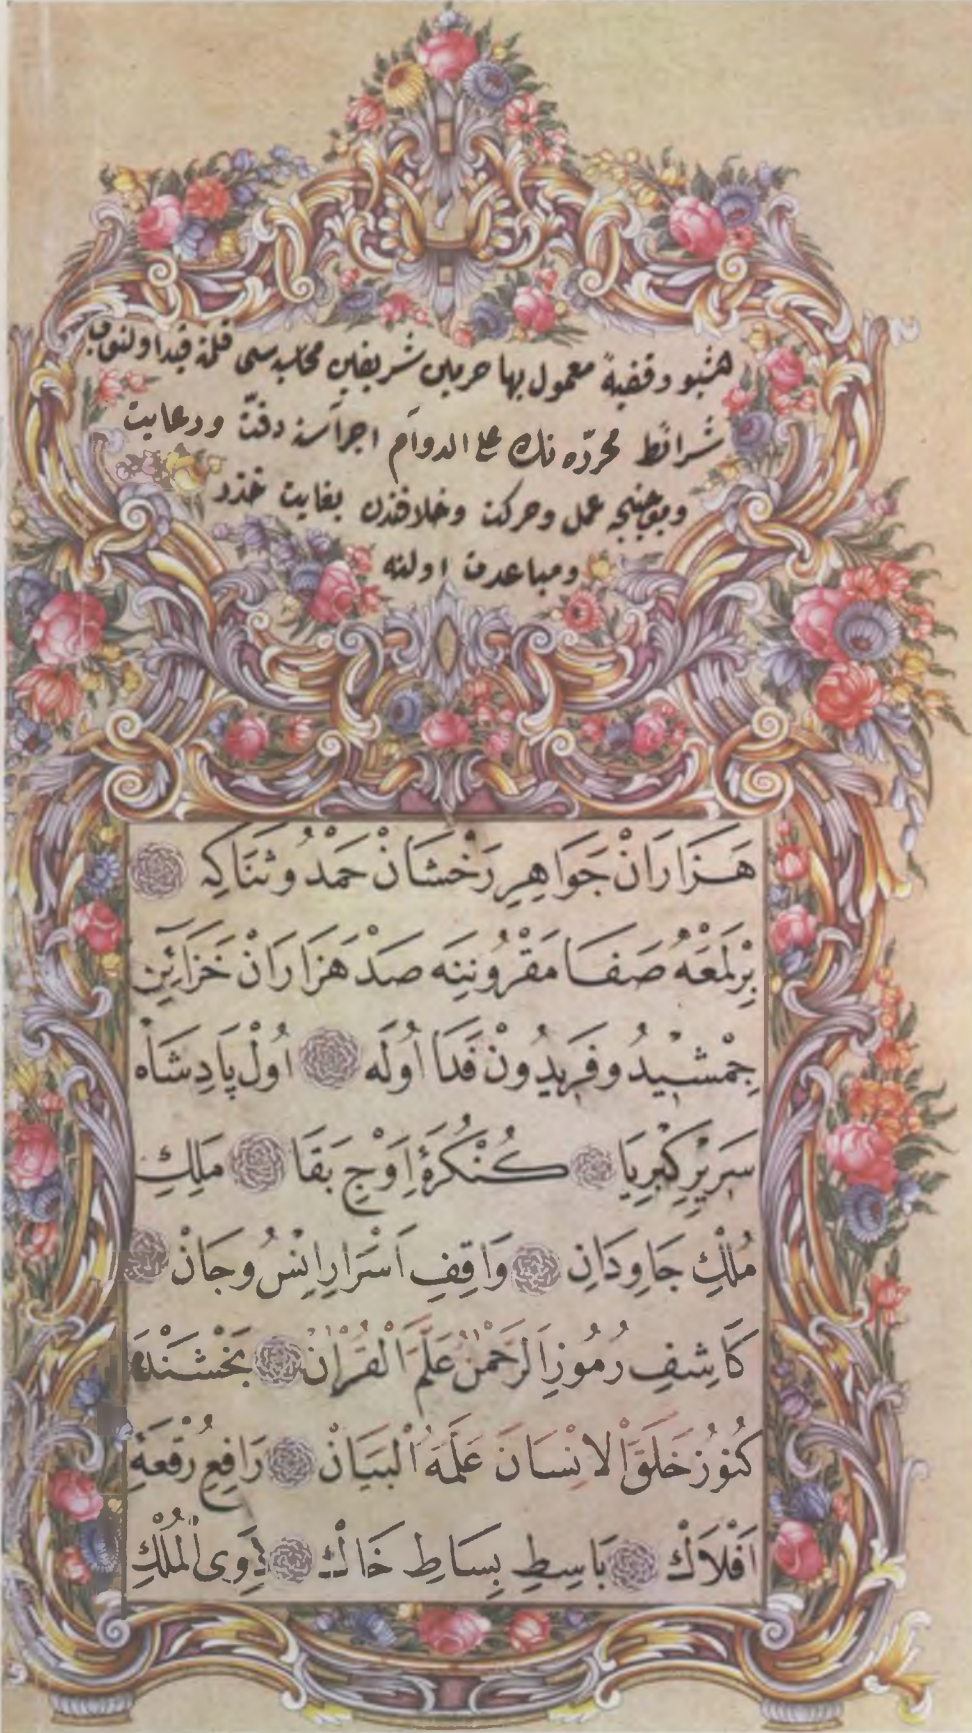 هشبو وقفیهٔ معمول بها حرمین شریفین محاسبه‌سی قلمنه قید اولنوب
شرائط محرّره نك علی الدوام اجراسنه دقّت ورعایت
وبموجبنجه عمل وحرکت وخلافندن بغایت حذر
ومباعدت اولنه
هَزَارَانْ جَوَاهِرِ رَخْشَانْ حَمْدُ وثَنَاكِه
بِرْ لَمْعَهٔ صَفَا مَقْرُونِنَه صَدْ هَزَارَانْ خَزَائِنِ
جِمْشِيدُ وفَرِيدُونْ فَدَا اُولَه اُولْ پَادِشَاهِ
سَرِيرِ كِبْرِيَا كُنْكُرَهٔ اِوْجِ بَقَا مَلِكِ
مُلْكِ جَاوِدَانِ وَاقِفِ اَسْرَارِ اِنْسُ وجَانْ
كَاشِفِ رُمُوزِ اَلرَّحْمٰنُ عَلَّمَ الْقُرْاٰنْ بَخْشَنْدَهٔ
كُنُوزِ خَلَقَ الْاِنْسَانَ عَلَّمَهُ الْبَيَانْ رَافِعِ رُقْعَهٔ
اَفْلَاكْ بَاسِطِ بِسَاطِ خَاكْ ذَوِى الْمُلْكِ